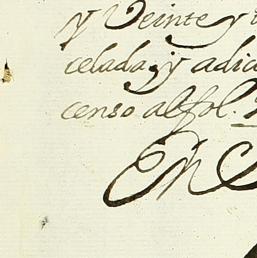 y Veinte y
celada, y adic
censo al fol.